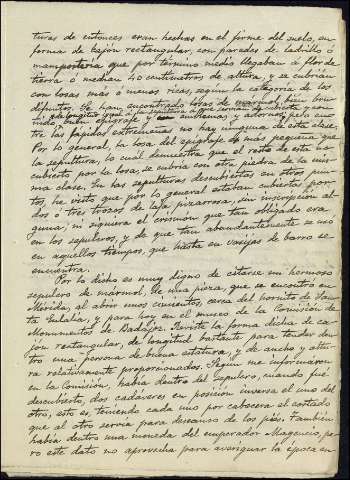 turas de entonces eran hechas en el firme del suelo, en
forma de cajón rectangular, con paredes de ladrillo ó
mampostería que por término medio llegaban á flor de
tierra ó median 40 centimetros de altura, y se cubrian
con losas más ó menos ricas, segun la categoria de los
difuntos. Se han encontrado losas de marmol,
emblemas y adornos, pero en
tre las lápidas extremeñas no hay ninguna de esta clase.
Por lo general, la losa del epigrafe es más pequeña que
la sepultura, lo cual demuestra que el resto de esta no
cubierto por la losa, se cubria con otra piedra de la mis
ma clase. En las sepulturas descubiertas en otros pun
tos, he visto que por lo general estaban cubiertas por
dos ó tres trozos de laja pizarrosa, sin inscripcion al
guna, ni siquiera el crismon que tan obligado era
en los sepulcros, y de que tan abundantemente se usó
en aquellos tiempos, que hasta en vasijas de barro se
encuentra.
Por lo dicho es muy digno de citarse un hermoso
sepulcro de marmol, de una pieza, que se encontró en
Mérida, al abrir unos cimientos, cerca del hornito de San
ta Eulalia, y para hoy en el museo de la Comisión de
Monumentos de Badajoz. Reviste la forma dicha de ca
jon rectangular, de longitud bastante para tender den
tro una persona de buena estatura, y de ancho y altu
ra relativamente proporcionados. Segun me informaron
en la Comisión, habia dentro del sepulcro, cuando fué
descubierto, dos cadaveres en posición inversa el uno del
otro, esto es teniendo cada uno por cabecera el costado
que al otro servia para descanso de los piés. Tambien
habia dentro una moneda del emperador Magencio, pe
ro este dato no aprovecha para averiguar la época en